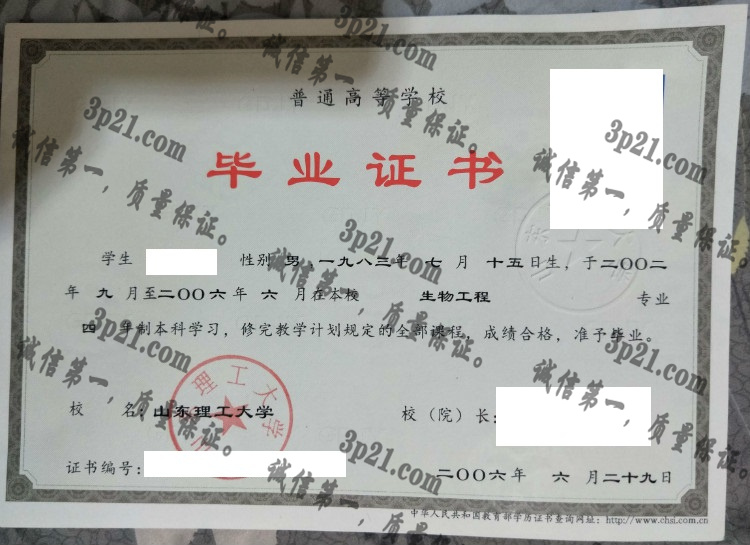 普通高等学校
毕业证书
学生 性别 男，一九八三年 七 月 十五日生，于二〇〇二
年 九 月至二〇〇六年 六 月在本校 生物工程 专业
四 年制本科学习，修完教学计划规定的全部课程，成绩合格，准予毕业。
校 名：山东理工大学 校（院）长：
理工大学
证书编号：
二〇〇六年 六 月二十九日
中华人民共和国教育部学历证书查询网址：http://www.chsi.com.cn
3p21.com
诚信第一，质量保证。
3p21.com
诚信第一，质量保证。
3p21.com
诚信第一，质量保证。
3p21.com
诚信第一，质量保证。
3p21.com
诚信第一，质量保证。
3p21.com
诚信第一，质量保证。
3p21.com
诚信第一，质量